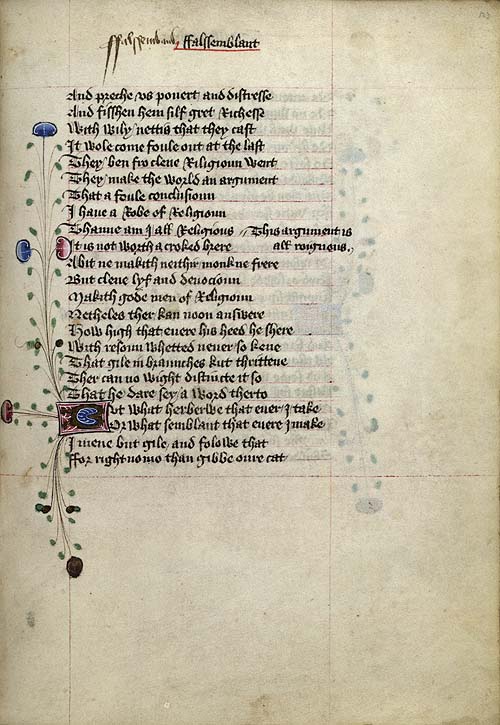 ffalssemblant ffalssemblant
And preche vs povert and distresse
And fisshen hem silf gret Richesse
With wily nettis that they cast
It wole come foule out at the last
They ben fro clene Religioun went
They make the world an argument
That a foule conclusioun
I haue a Robe of Religioun
Thanne am I all Religious This argument is
It is not worth a croked brere all roignous
Abit ne makith neithir monk ne frere
But clene lyf and devocioun
Makith gode men of Religioun
Netheles ther kan noon answere
How high that euere his heed he shere
With resoun whetted neuer so kene
That gile in braunches kut thrittene
Ther can no wight distincte it so
That he dare sey a word therto
But what herberwe that euer I take
Or what semblant that euere I make
I mene but gile and folowe that
ffor right nomo than gibbe oure cat